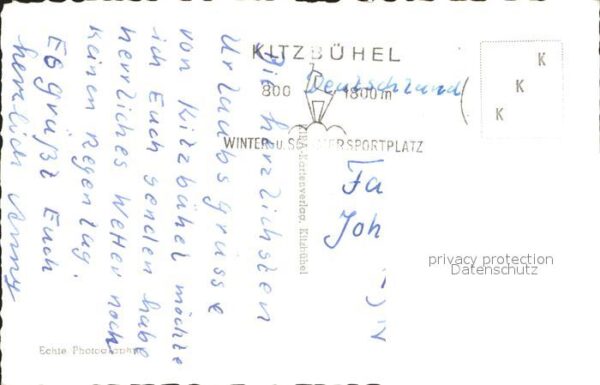 KITZBÜHEL
800 1800m
WINTER- u. SOMMERSPORTPLATZ
K
K
K
Deutschland
Die herzlichsten
Urlaubsgrüsse
von Kitzbühel möchte
ich Euch senden habe
herrliches Wetter noch
keinen Regentag.
Es grüßt Euch
herzlich Anny
Fa
Joh
RIRA-Kartenverlag, Kitzbühel
Echte Photographie
privacy protection
Datenschutz